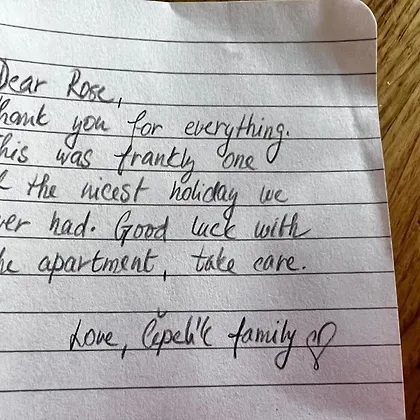 Dear Rose,
hank you for everything.
his was frankly one
f the nicest holiday we
ver had. Good luck with
he apartment, take care.
Love, Čepelík family ♡